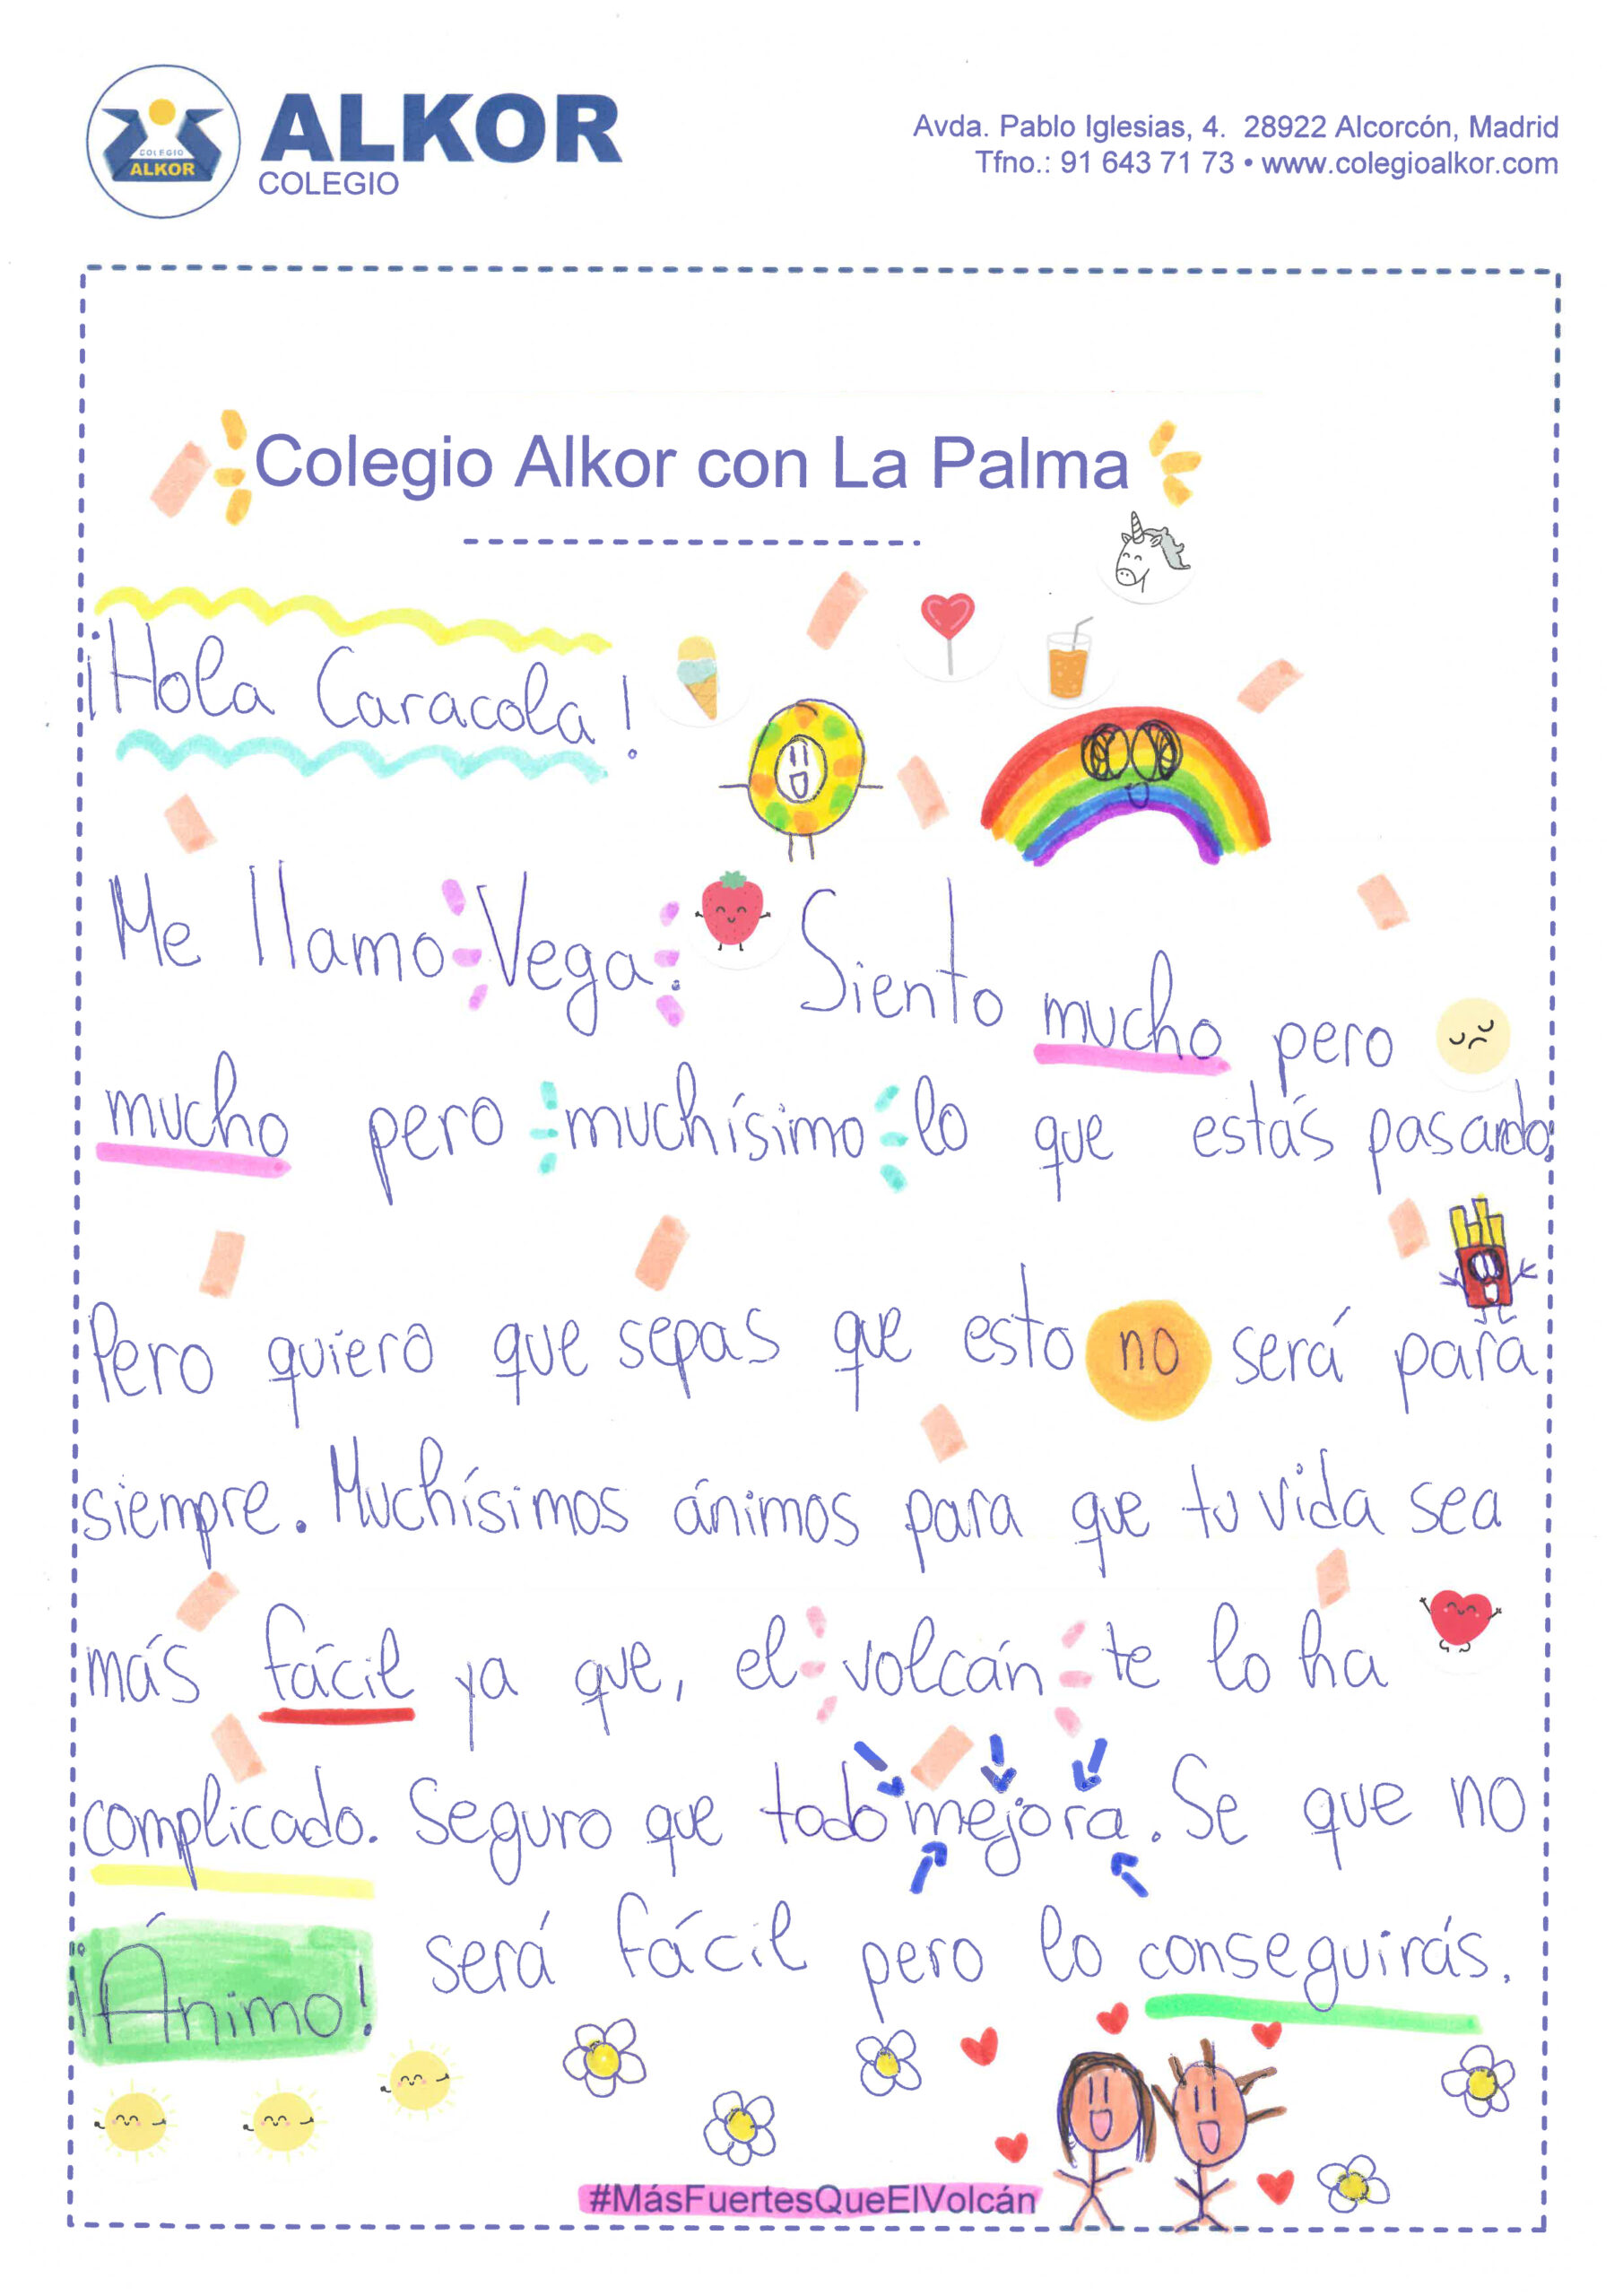 COLEGIO
ALKOR
ALKOR
COLEGIO
Avda. Pablo Iglesias, 4. 28922 Alcorcón, Madrid
Tfno.: 91 643 71 73 • www.colegioalkor.com
Colegio Alkor con La Palma
¡Hola Caracola!
Me llamo Vega. Siento mucho pero
mucho pero muchísimo lo que estás pasando.
Pero quiero que sepas que esto no será para
siempre. Muchísimos ánimos para que tu vida sea
más fácil ya que, el volcán te lo ha
complicado. Seguro que todo mejora. Se que no
será fácil pero lo conseguirás.
¡Ánimo!
#MásFuertesQueElVolcán